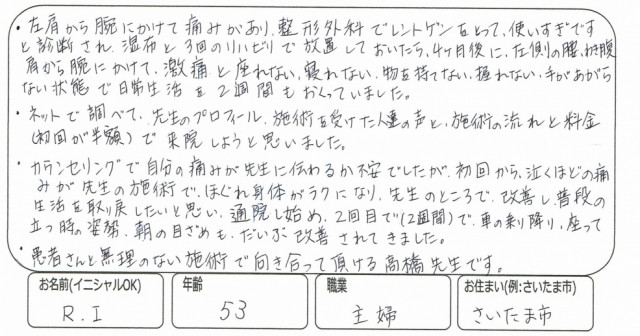 ・左肩から腕にかけて痛みがあり、整形外科でレントゲンをとって、使いすぎです
と診断され、湿布と3回のリハビリで放置しておいたら、4ヶ月後に、左側の腰、わき腹
肩から腕にかけて、激痛と座れない、寝れない、物を持てない、握れない、手があがら
ない状態で日常生活を2週間もおくっていました。
・ネットで調べて、先生のプロフィール、施術を受けた人達の声と、施術の流れと料金
(初回が半額)で来院しようと思いました。
・カウンセリングで自分の痛みが先生に伝わるか不安でしたが、初回から、泣くほどの痛
みが先生の施術で、ほぐれ身体がラクになり、先生のところで、改善し普段の
生活を取り戻したいと思い、通院し始め、2回目で(2週間)で、車の乗り降り、座って
立つ時の姿勢、朝の目ざめも、だいぶ改善されてきました。
・患者さんと無理のない施術で向き合って頂ける高橋先生です。
お名前(イニシャルOK) 年齢 職業 お住まい(例:さいたま市)
R.I 53 主婦 さいたま市